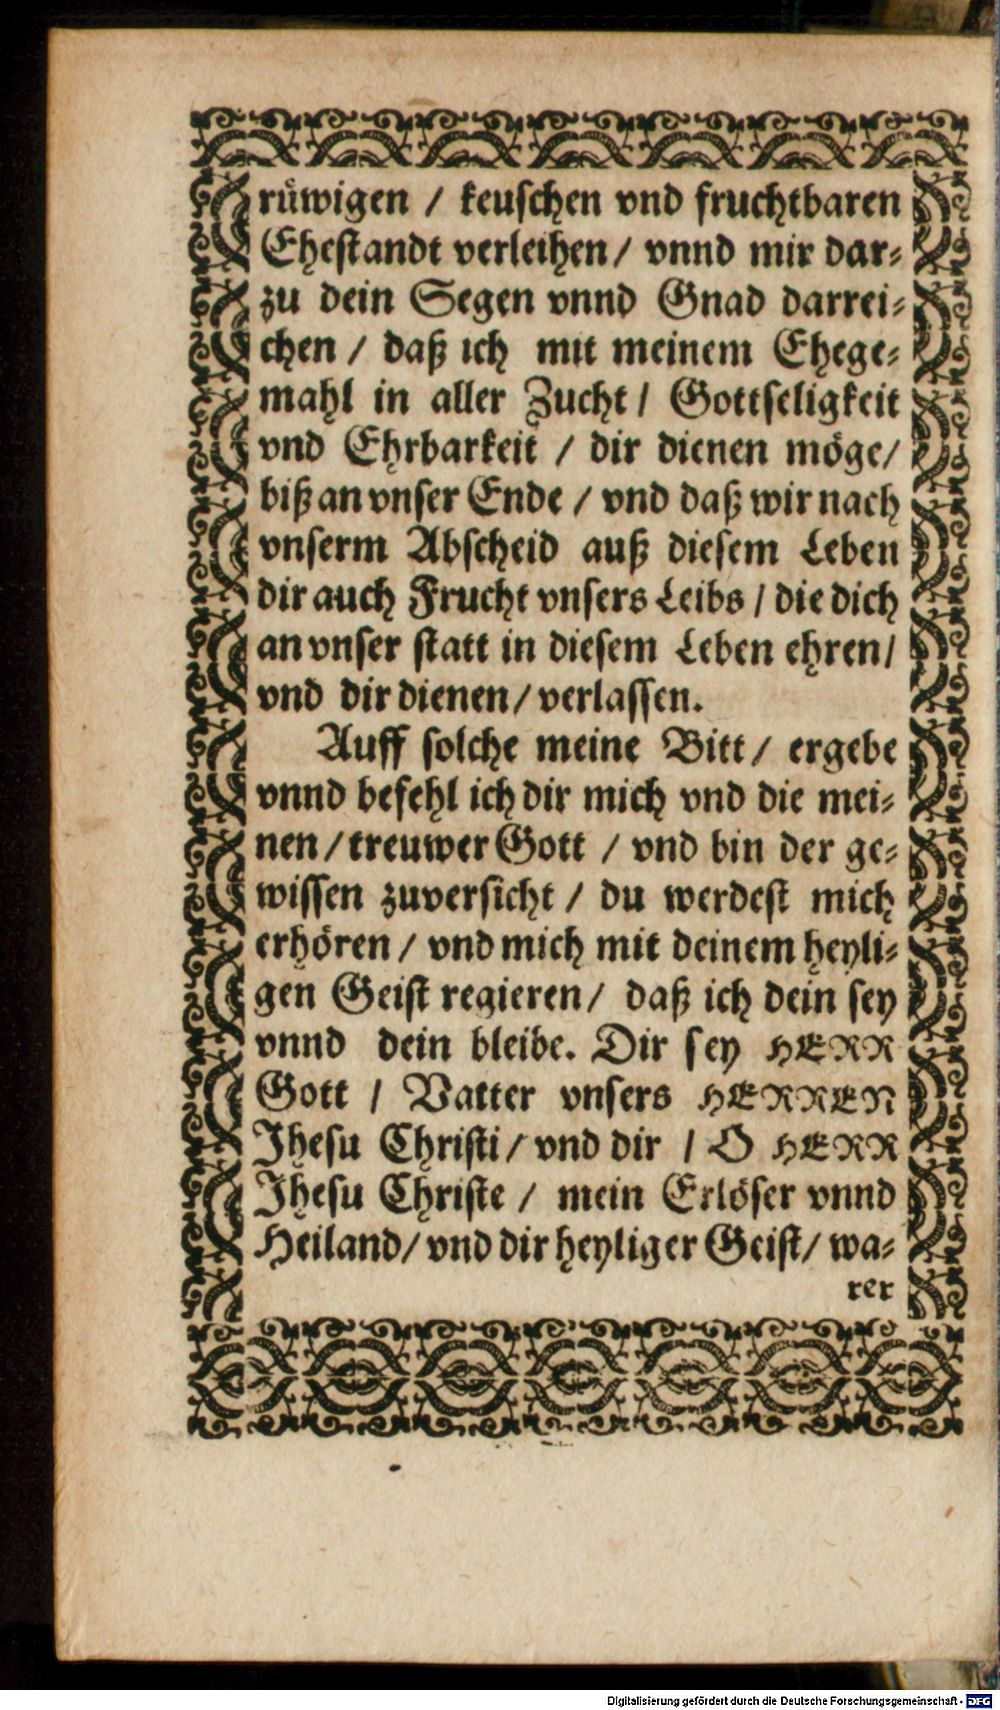 ruͤwigen / keuschen vnd fruchtbaren
Ehestandt verleihen / vnnd mir dar-
zu dein Segen vnnd Gnad darrei-
chen / daß ich mit meinem Ehege-
mahl in aller Zucht / Gottseligkeit
vnd Ehrbarkeit / dir dienen möge /
biß an vnser Ende / vnd daß wir nach
vnserm Abscheid auß diesem Leben
dir auch Frucht vnsers Leibs / die dich
an vnser statt in diesem Leben ehren /
vnd dir dienen / verlassen.
Auff solche meine Bitt / ergebe
vnnd befehl ich dir mich vnd die mei-
nen / treuwer Gott / vnd bin der ge-
wissen zuversicht / du werdest mich
erhören / vnd mich mit deinem heyli-
gen Geist regieren / daß ich dein sey
vnnd dein bleibe. Dir sey HERR
Gott / Vatter vnsers HERREN
Jhesu Christi / vnd dir / O HERR
Jhesu Christe / mein Erlöser vnnd
Heiland / vnd dir heyliger Geist / wa-
rer
Digitalisierung gefördert durch die Deutsche Forschungsgemeinschaft - DFG